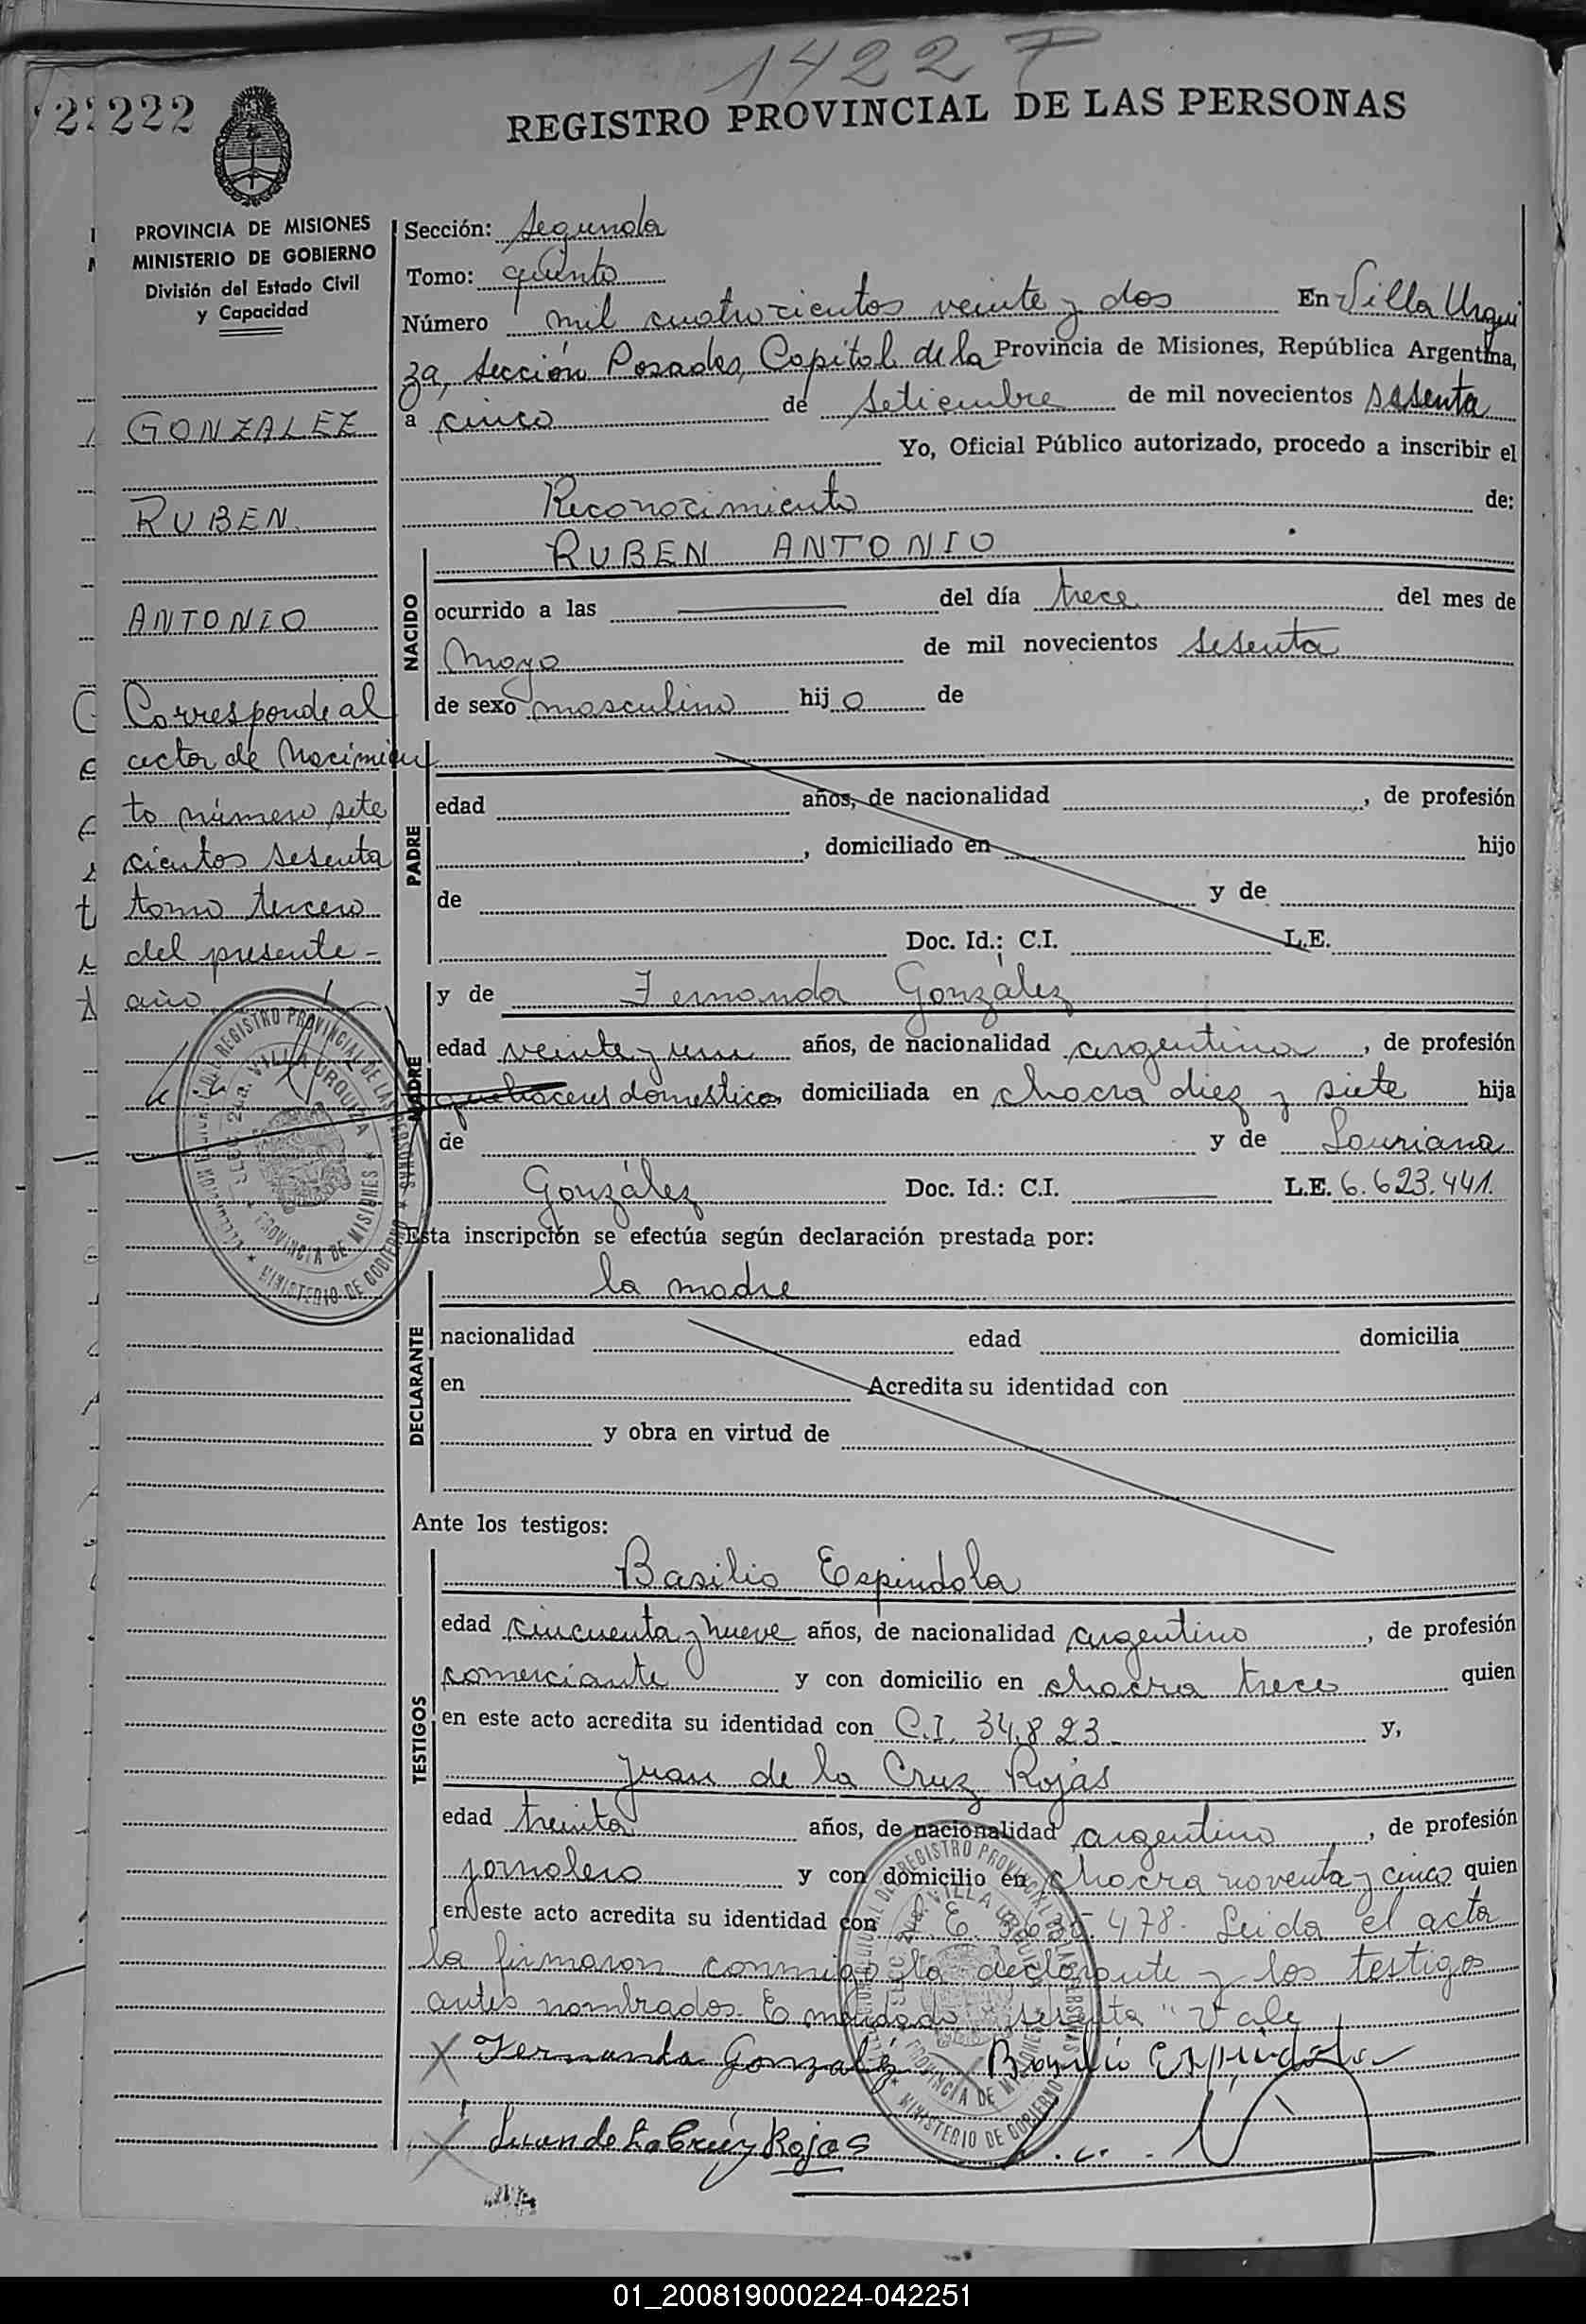 1422 F
222
REGISTRO PROVINCIAL DE LAS PERSONAS
PROVINCIA DE MISIONES
MINISTERIO DE GOBIERNO
División del Estado Civil
y Capacidad
GONZALEZ
RUBEN
ANTONIO
Corresponde al
acta de Nacimien
to número sete
cientos sesenta
tomo tercero
del presente
año
Sección: Segunda
Tomo: quinto
Número mil cuatrocientos veinte y dos En Villa Urqui
za, sección Posadas, Capital de la Provincia de Misiones, República Argentina,
a cinco de setiembre de mil novecientos sesenta
Yo, Oficial Público autorizado, procedo a inscribir el
Reconocimiento de:
NACIDO
RUBEN ANTONIO
ocurrido a las del día trece del mes de
Mayo de mil novecientos sesenta
de sexo masculino hijo de
PADRE
edad años, de nacionalidad , de profesión
, domiciliado en hijo
de y de
Doc. Id.: C.I. L.E.
MADRE
y de Fernanda González
edad veinte y un años, de nacionalidad argentina , de profesión
quehaceres domesticos domiciliada en chacra diez y siete hija
de y de Lauriana
González Doc. Id.: C.I. L.E. 6.623.441.
Esta inscripción se efectúa según declaración prestada por:
DECLARANTE
la madre
nacionalidad edad domicilia
en Acredita su identidad con
y obra en virtud de
Ante los testigos:
TESTIGOS
Basilio Espindola
edad cincuenta y nueve años, de nacionalidad argentino , de profesión
comerciante y con domicilio en chacra trece quien
en este acto acredita su identidad con C.I. 34.823 y,
Juan de la Cruz Rojas
edad treinta años, de nacionalidad argentino , de profesión
jornalero y con domicilio en chacra noventa y cinco quien
en este acto acredita su identidad con L.E. 478. Leida el acta
la firmaron conmigo la declarante y los testigos
antes nombrados. Emendado "sesenta" Vale
X Fernanda Gonzalez X Basilio Espindola
X Juan de La Cruz Rojas
REGISTRO PROVINCIAL DE LAS PERSONAS
VILLA URQUIZA
PROVINCIA DE MISIONES
MINISTERIO DE GOBIERNO
01_200819000224-042251